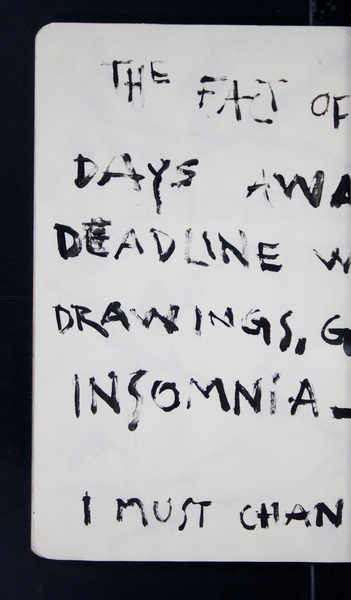 THE FACT OF
DAYS AWA
DEADLINE W
DRAWINGS, G
INSOMNIA —
I MUST CHAN